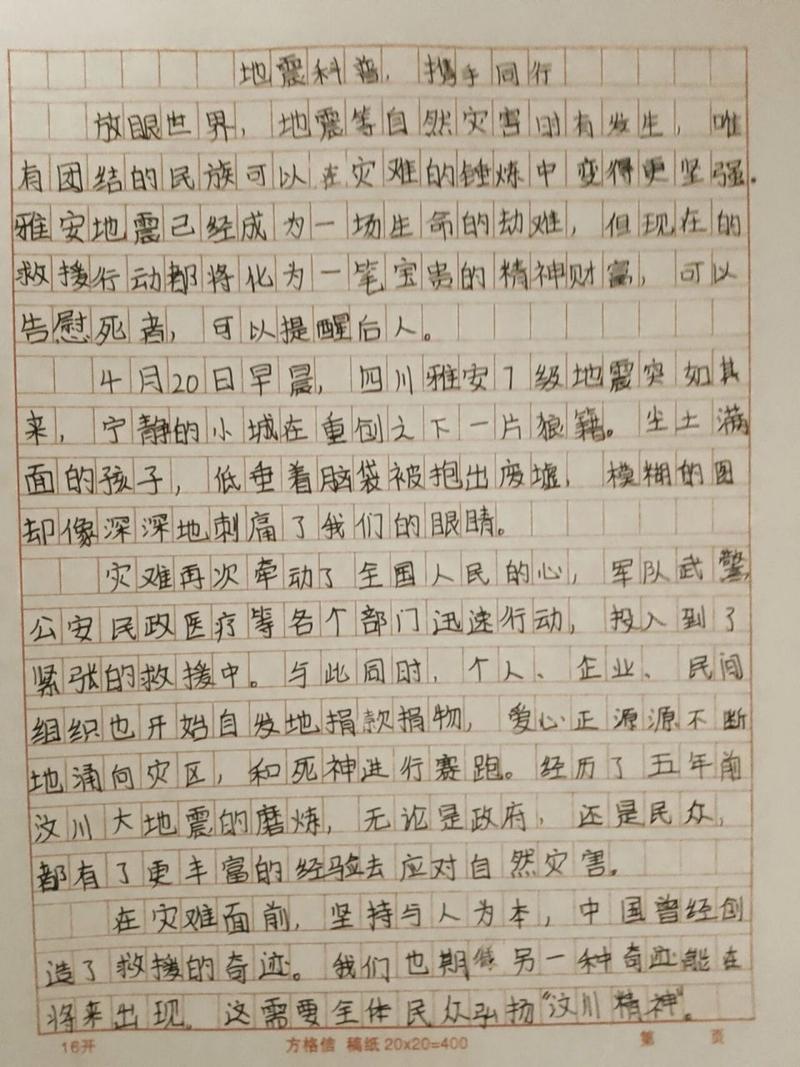 地震科普，携手同行
放眼世界，地震等自然灾害时有发生，唯
有团结的民族可以在灾难的锤炼中变得更坚强.
雅安地震已经成为一场生命的劫难，但现在的
救援行动都将化为一笔宝贵的精神财富，可以
告慰死者，可以提醒后人。
4月20日早晨，四川雅安7级地震突如其
来，宁静的小城在重创之下一片狼籍。尘土满
面的孩子，低垂着脑袋被抱出废墟，模糊的图
却像深深地刺痛了我们的眼睛。
灾难再次牵动了全国人民的心，军队武警
公安民政医疗等各个部门迅速行动，投入到了
紧张的救援中。与此同时，个人、企业、民间
组织也开始自发地捐款捐物，爱心正源源不断
地涌向灾区，和死神进行赛跑。经历了五年前
汶川大地震的磨炼，无论是政府，还是民众，
都有了更丰富的经验去应对自然灾害。
在灾难面前，坚持与人为本，中国曾经创
造了救援的奇迹。我们也期待另一种奇迹能在
将来出现。这需要全体民众弘扬“汶川精神”。
16开
方格信 稿纸 20x20=400
第 页